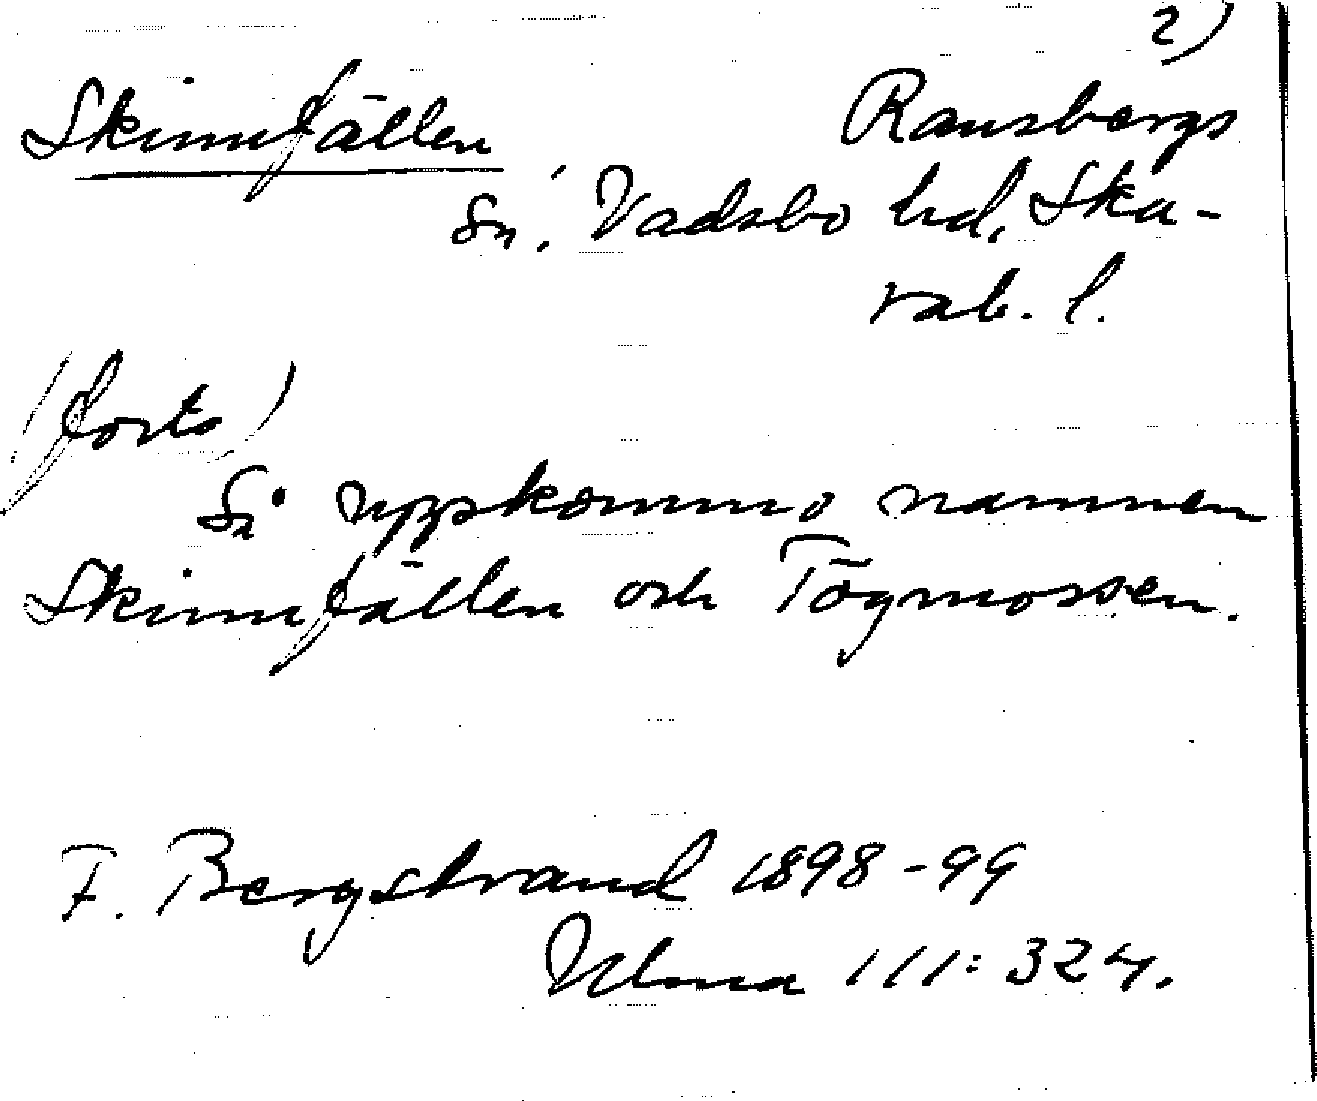 2)
Skinnfällen Ransbergs
sn. Vadsbo hd, Ska-
rab. l.
(forts)
Så uppkommo namnen
Skinnfällen och Tögmossen.
F. Bergstrand 1898-99
Ulma 111:324.